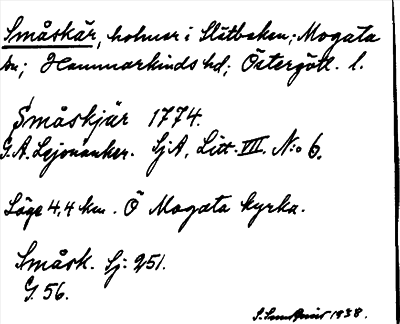 Småskär, holmar i Slätbaken; Mogata
sn; Hammarkinds hd; Östergötl. l.
Småskjär 1774.
G. A. Lejonanker. SjA, Litt. VIII. N:o 6.
Läge 4,4 km. Ö Mogata kyrka.
Småsk. Sj: 251.
G. 56.
1938.